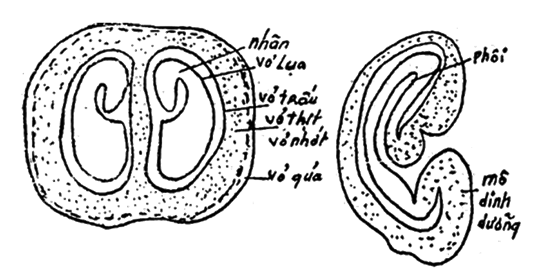 nhân
vỏ lụa
vỏ trấu
vỏ thịt
vỏ nhớt
vỏ quả
phôi
mô
dinh
dưỡng